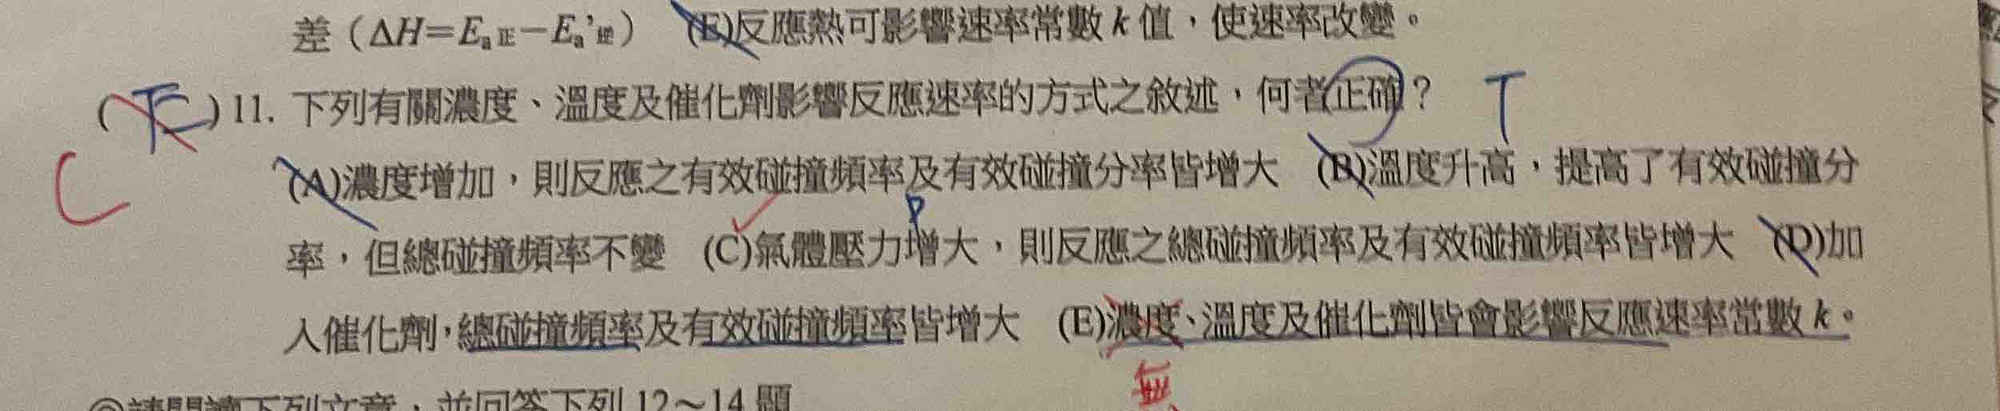 差（ΔH=Ea正－Ea'逆） (E)反應熱可影響速率常數 k 值，使速率改變。
( E ) 11. 下列有關濃度、溫度及催化劑影響反應速率的方式之敘述，何者正確？ T
C (A)濃度增加，則反應之有效碰撞頻率及有效碰撞分率皆增大 (B)溫度升高，提高了有效碰撞分
P
率，但總碰撞頻率不變 (C)氣體壓力增大，則反應之總碰撞頻率及有效碰撞頻率皆增大 (D)加
入催化劑，總碰撞頻率及有效碰撞頻率皆增大 (E)濃度、溫度及催化劑皆會影響反應速率常數 k。
無
◎請閱讀下列文章，並回答下列 12～14 題